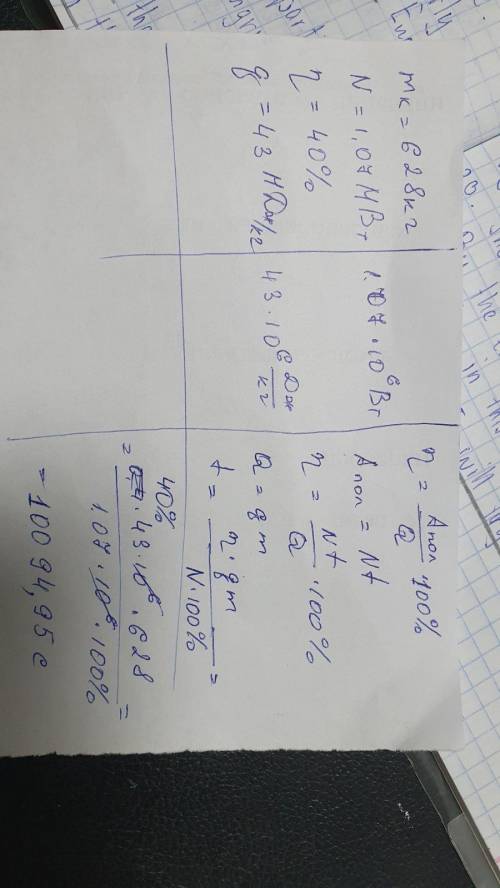 mк = 628 кг
N = 1,07 МВт
η = 40%
q = 43 МДж/кг
1,07 · 10⁶ Вт
43 · 10⁶ Дж/кг
η = Aпол/Q · 100%
Aпол = Nt
η = Nt/Q · 100%
Q = qm
t = η · qm / N · 100% =
= 40% · 43 · 10⁶ · 628 / 1.07 · 10⁶ · 100% =
= 10094,95 с